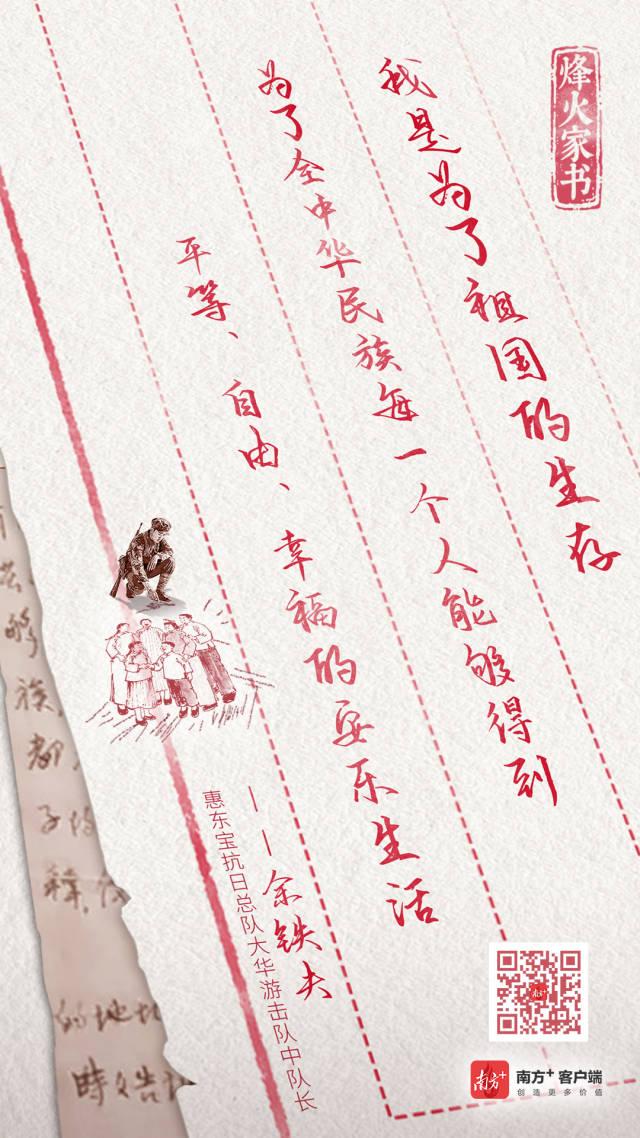 烽火家书
我是为了祖国的生存
为了全中华民族每一个人能够得到
平等、自由、幸福的安乐生活
——余铁夫
惠东宝抗日总队大华游击队中队长
够
族，
都
子
的地
時
告
南方+
南方+ 客户端
创造更多价值